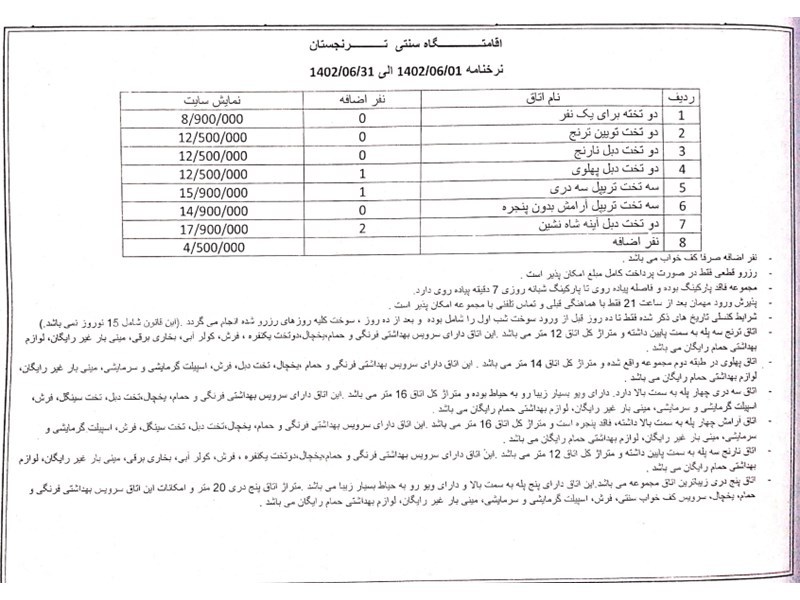 اقامتـــــــگاه سنتی تـــــرنجستان
نرخنامه 1402/06/01 الی 1402/06/31
ردیف نام اتاق نفر اضافه نمایش سایت
1 دو تخته برای یک نفر 0 8/900/000
2 دو تخت تویین ترنج 0 12/500/000
3 دو تخت دبل نارنج 0 12/500/000
4 دو تخت دبل پهلوی 1 12/500/000
5 سه تخت تریپل سه دری 1 15/900/000
6 سه تخت تریپل آرامش بدون پنجره 0 14/900/000
7 دو تخت دبل آینه شاه نشین 2 17/900/000
8 نفر اضافه 4/500/000
- نفر اضافه صرفا کف خواب می باشد .
- رزرو قطعی فقط در صورت پرداخت کامل مبلغ امکان پذیر است .
- مجموعه فاقد پارکینگ بوده و فاصله پیاده روی تا پارکینگ شبانه روزی 7 دقیقه پیاده روی دارد.
- پذیرش ورود مهمان بعد از ساعت 21 فقط با هماهنگی قبلی و تماس تلفنی با مجموعه امکان پذیر است .
- شرایط کنسلی تاریخ های ذکر شده فقط تا ده روز قبل از ورود سوخت شب اول را شامل بوده و بعد از ده روز ، سوخت کلیه روزهای رزرو شده انجام می گردد .(این قانون شامل 15 نوروز نمی باشد.)
- اتاق ترنج سه پله به سمت پایین داشته و متراژ کل اتاق 12 متر می باشد .این اتاق دارای سرویس بهداشتی فرنگی و حمام،یخچال،دوتخت یکنفره ، فرش، کولر آبی، بخاری برقی، مینی بار غیر رایگان، لوازم
بهداشتی حمام رایگان می باشد .
- اتاق پهلوی در طبقه دوم مجموعه واقع شده و متراژ کل اتاق 14 متر می باشد . این اتاق دارای سرویس بهداشتی فرنگی و حمام، یخچال، تخت دبل، فرش، اسپیلت گرمایشی و سرمایشی، مینی بار غیر رایگان،
لوازم بهداشتی حمام رایگان می باشد .
- اتاق سه دری چهار پله به سمت بالا دارد. دارای ویو بسیار زیبا رو به حیاط بوده و متراژ کل اتاق 16 متر می باشد .این اتاق دارای سرویس بهداشتی فرنگی و حمام، یخچال،تخت دبل، تخت سینگل، فرش،
اسپیلت گرمایشی و سرمایشی، مینی بار غیر رایگان، لوازم بهداشتی حمام رایگان می باشد .
- اتاق آرامش چهار پله به سمت بالا داشته، فاقد پنجره است و متراژ کل اتاق 16 متر می باشد .این اتاق دارای سرویس بهداشتی فرنگی و حمام، یخچال،تخت دبل، تخت سینگل، فرش، اسپیلت گرمایشی و
سرمایشی، مینی بار غیر رایگان، لوازم بهداشتی حمام رایگان می باشد .
- اتاق نارنج سه پله به سمت پایین داشته و متراژ کل اتاق 12 متر می باشد .این اتاق دارای سرویس بهداشتی فرنگی و حمام،یخچال،دوتخت یکنفره ، فرش، کولر آبی، بخاری برقی، مینی بار غیر رایگان، لوازم
بهداشتی حمام رایگان می باشد .
- اتاق پنج دری زیباترین اتاق مجموعه می باشد.این اتاق دارای پنج پله به سمت بالا و دارای ویو رو به حیاط بسیار زیبا می باشد .متراژ اتاق پنج دری 20 متر و امکانات این اتاق سرویس بهداشتی فرنگی و
حمام، یخچال، سرویس کف خواب سنتی، فرش، اسپیلت گرمایشی و سرمایشی، مینی بار غیر رایگان، لوازم بهداشتی حمام رایگان می باشد .